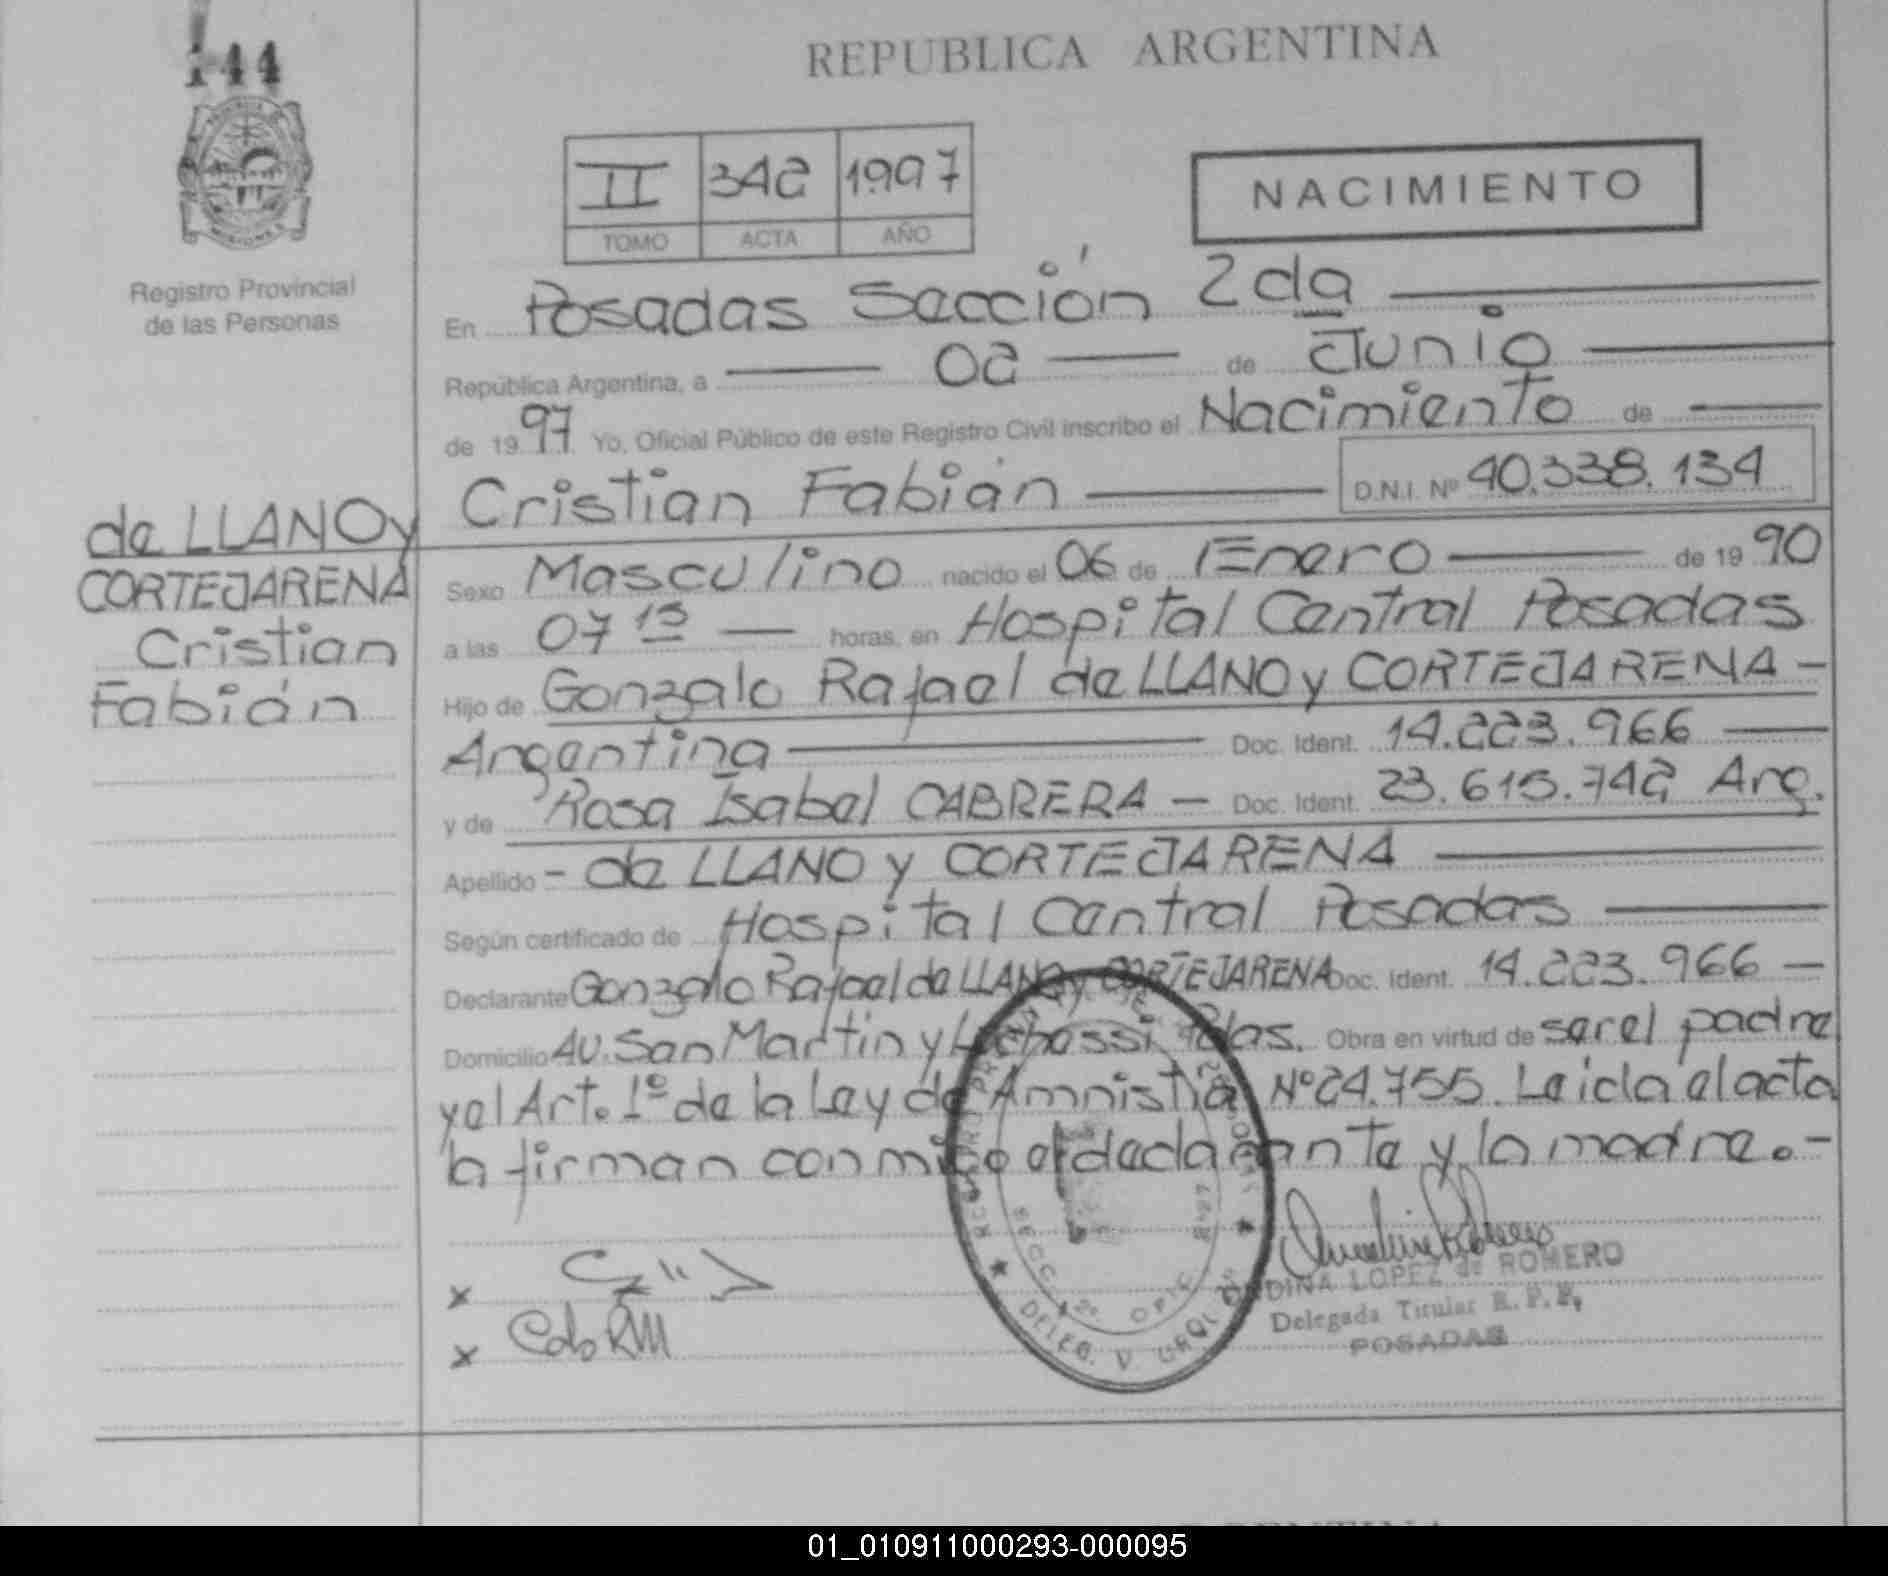 144
REPUBLICA ARGENTINA
II 342 1997
TOMO ACTA AÑO
NACIMIENTO
Registro Provincial
de las Personas
En Posadas Sección 2da
República Argentina, a 02 de Junio
de 1997 Yo, Oficial Público de este Registro Civil inscribo el Nacimiento de
Cristian Fabián D.N.I. Nº 40.338.134
de LLANO y
CORTEJARENA
Cristian
Fabián
Sexo Masculino nacido el 06 de Enero de 1990
a las 07 15 horas, en Hospital Central Posadas
Hijo de Gonzalo Rafael de LLANO y CORTEJARENA -
Argentina Doc. Ident. 14.223.966
y de Rosa Isabel CABRERA - Doc. Ident. 23.615.742 Arg.
Apellido - de LLANO y CORTEJARENA
Según certificado de Hospital Central Posadas
Declarante Gonzalo Rafael de LLANO y CORTEJARENA Doc. Ident. 14.223.966 -
Domicilio Av. San Martin y Pdas. Obra en virtud de ser el padre
y el Art. 1º de la Ley de Amnistía Nº 24.755. Leida el acta
la firman conmigo el declarante y la madre.-
x
x
LOPEZ de ROMERO
Delegada Titular R.P.P.
POSADAS
01_010911000293-000095